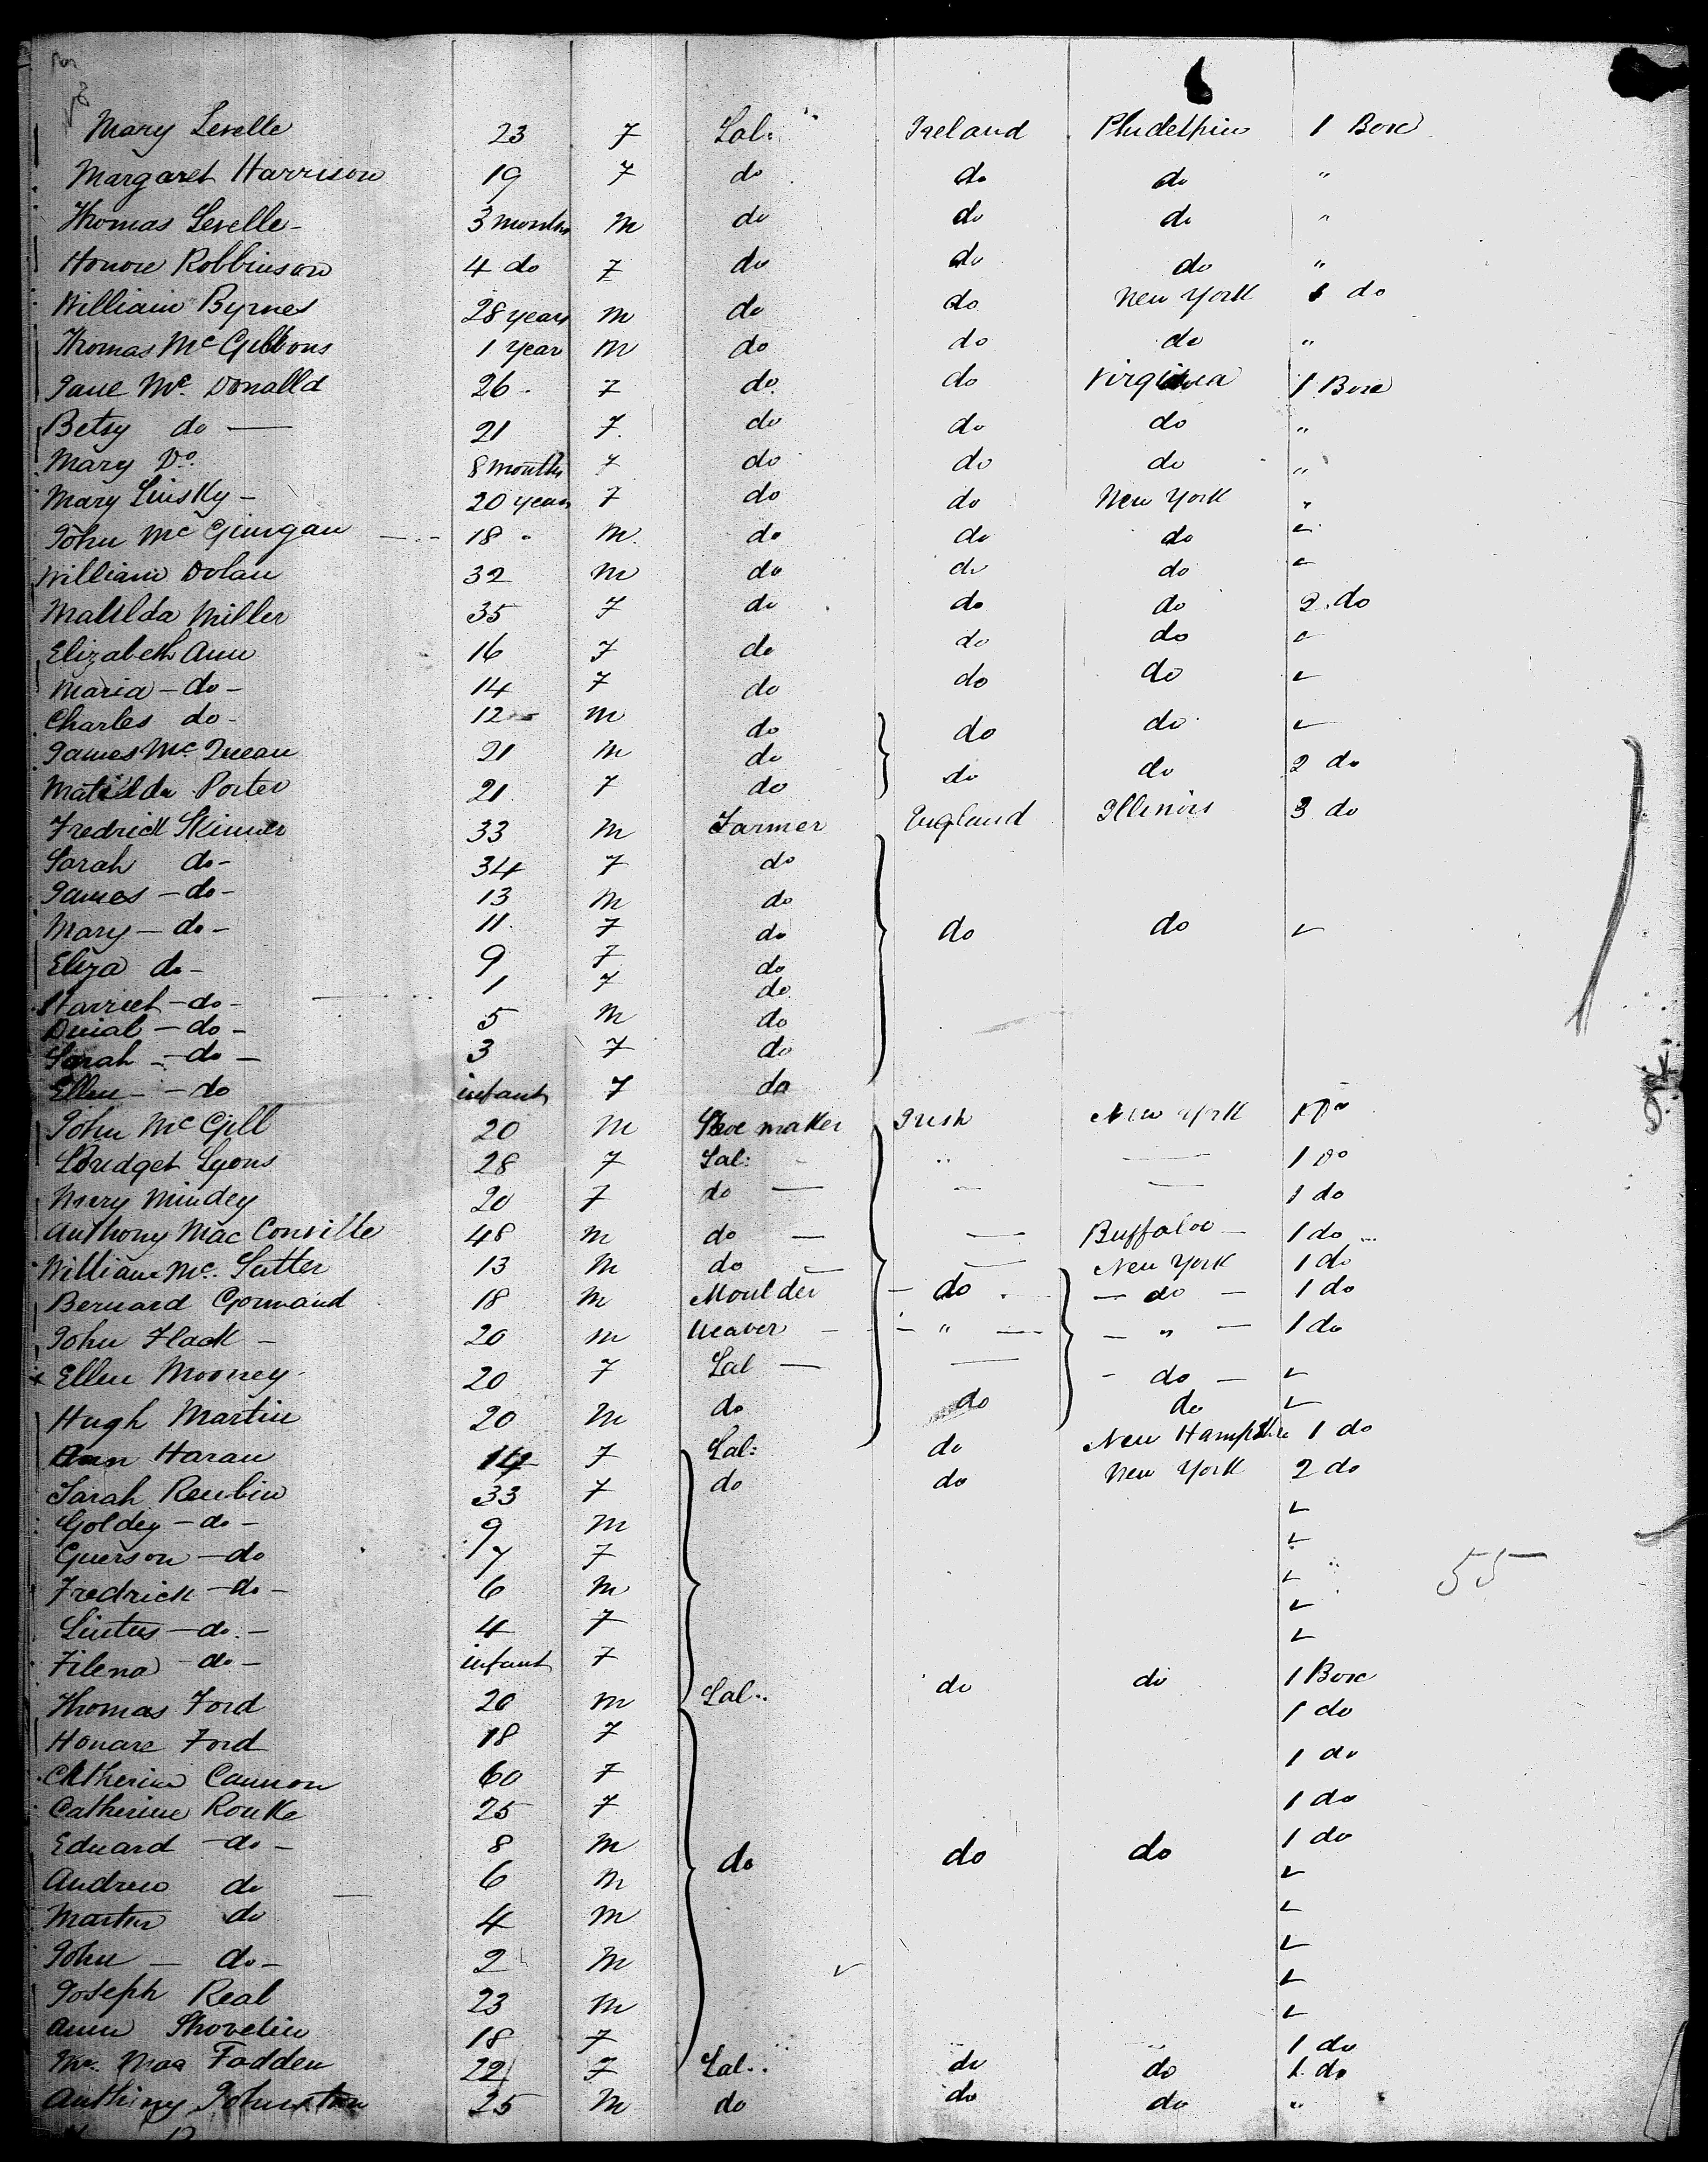 Mary Levelle 23 F Lab: Ireland Phidelphia 1 Box
Margaret Harrison 19 F do do do "
Thomas Levelle - 3 months M do do do "
Honore Robbinson 4 do F do do do "
William Byrnes 28 years M do do New York 1 do
Thomas McGibbons 1 year M do do do "
Jane Mc. Donalld 26 F do do Virginia 1 Box
Betsy do — 21 F do do do "
Mary Do. 8 months F do do do "
Mary Linsky - 20 years F do do New York "
John McGinngan 18 " M do do do ✓
William Dolan 32 M do do do ✓
Matilda Miller 35 F do do do 2 do
Elizabeth Ann 16 F do do do ✓
Maria - do - 14 F do do do ✓
Charles do - 12 M do do do ✓
James Mc. 21 M do
Matilda Porter 21 F do do do 2 do
Fredrick Skinner 33 M Farmer England Illinois 3 do
Sarah do - 34 F do
James - do - 13 M do
Mary - do - 11 F do do do ✓
Eliza do - 9 F do
Harriet - do - 1 F do
- do - 5 M do
Sarah - do - 3 F do
Ellen - do infant F do
John McGill 20 M Shoe maker Irish New York 1 Do
Bridget Lyons 28 F Lab: " — 1 Do
Mary Mindey 20 F do — — — 1 do
Anthony Mac Conville 48 M do — — Buffaloe - 1 do
William Mc. Sutter 13 M do — — New York 1 do
Bernard Gormand 18 M Moulder - do - - do - 1 do
John Flack - 20 M Weaver - - " - - " - 1 do
x Ellen Mooney - 20 F Lab — — - do - ✓
Hugh Martin 20 M do do do ✓
Ann Haran 14 F Lab: do New Hampshire 1 do
Sarah Reubin 33 F do do New York 2 do
Goldey - do - 9 M ✓
Guerson - do 7 F ✓
Fredrick - do - 6 M ✓
- do - 4 F ✓
Filena - do - infant F ✓
Thomas Ford 20 M Lab.. do do 1 Box
Honare Ford 18 F 1 do
Catherine Cannon 60 F 1 do
Catherine Rouke 25 F 1 do
Eduard - do - 8 M do do do 1 do
Andrew do 6 M ✓
Martin do 4 M ✓
John - do - 2 M ✓
Joseph Real 23 M ✓
Ann Shovelin 18 F ✓
Mac Fadden 22 F Lab.. do do 1 do
1 do
Anthiny Johnston 25 M do do do "
55